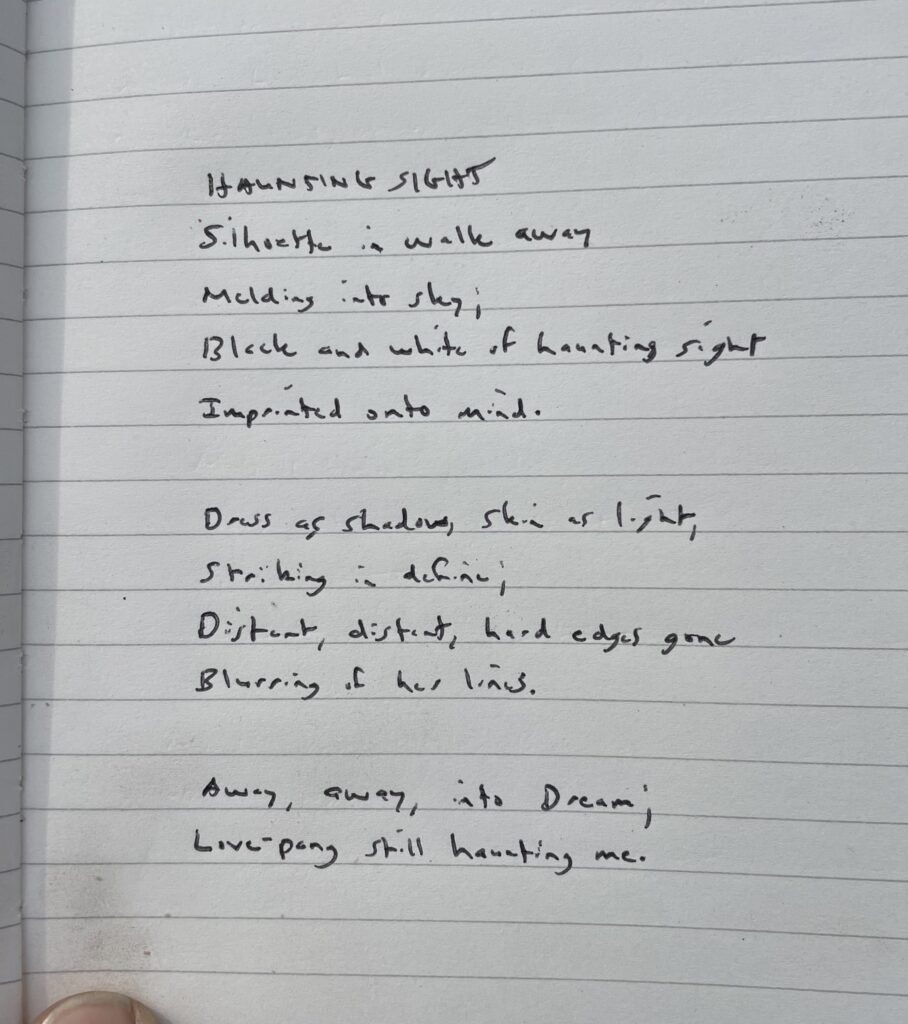 HAUNTING SIGHT
Silhoette in walk away
Melding into sky;
Black and white of haunting sight
Imprinted onto mind.
Dress as shadow, skin as light,
Striking in define;
Distant, distant, hard edges gone
Blurring of her lines.
Away, away, into Dream;
Love-pang still haunting me.